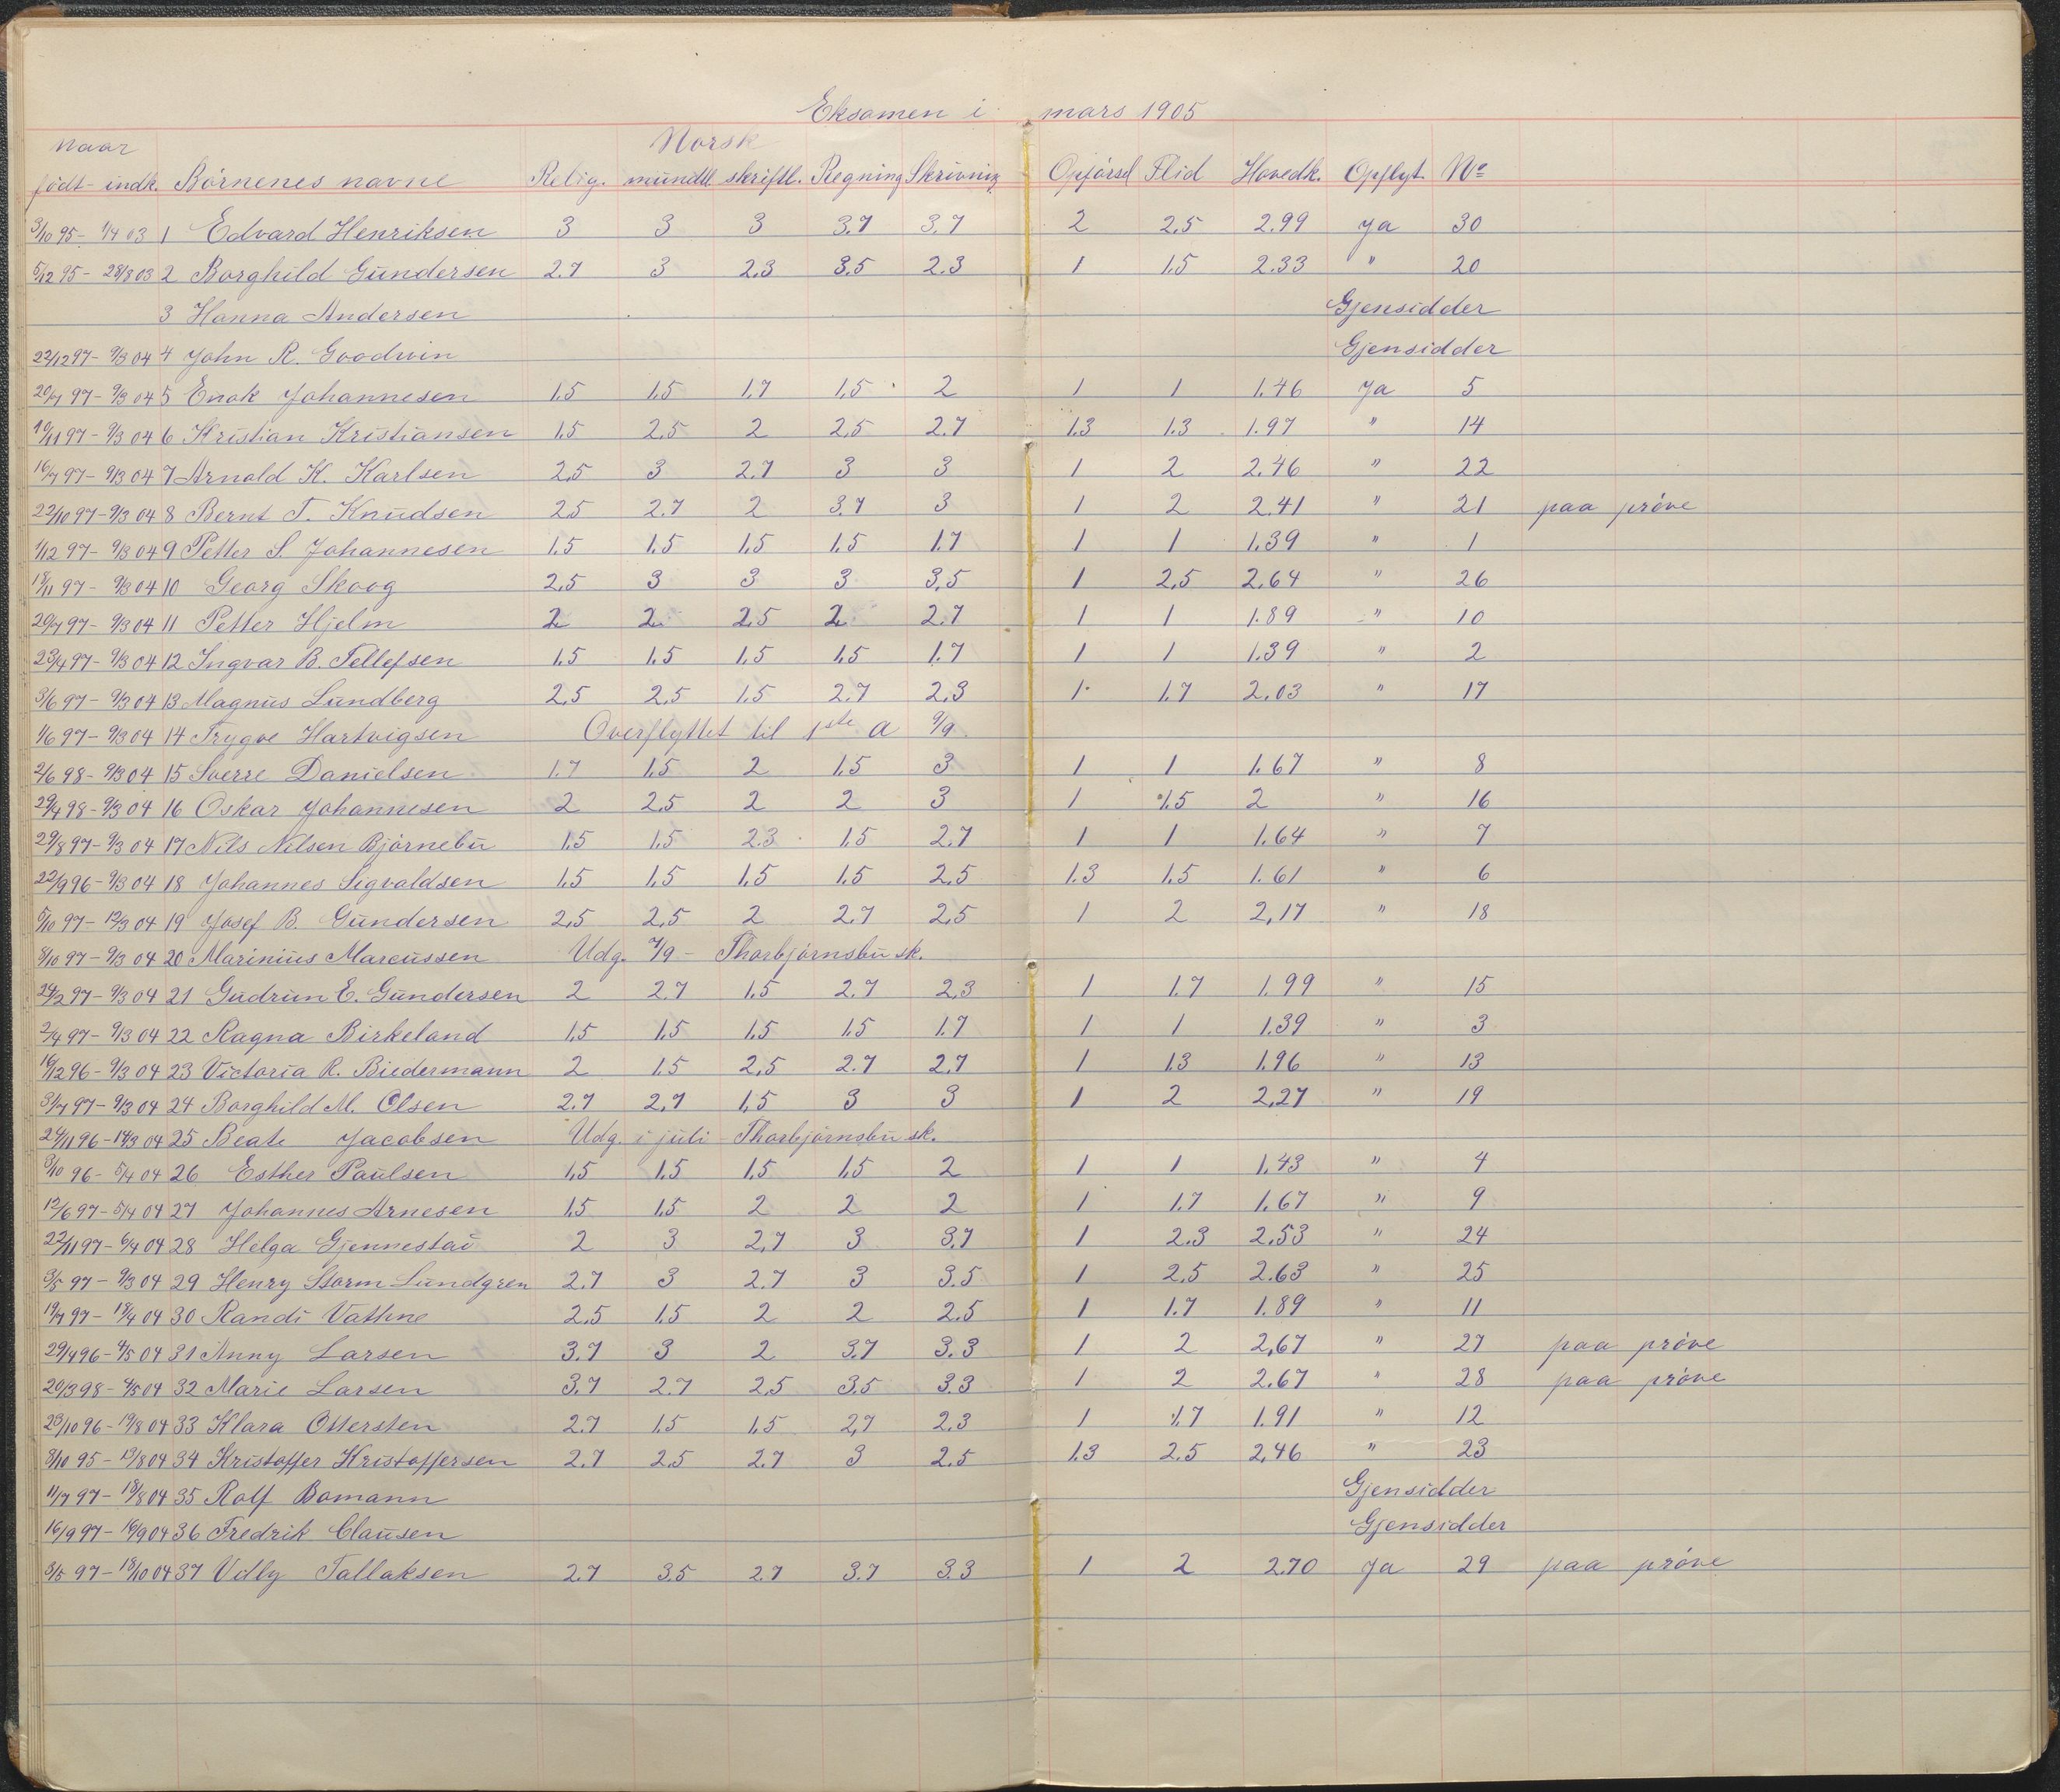 Eksamen i mars 1905
naar Norsk
født - indk. Børnenes navne Relig. mundtl. skriftl. Regning Skrivning Opførsel Flid Hovedk. Opflyt. No
3/10 95 - 1/4 03 1 Edvard Henriksen 3 3 3 3.7 3.7 2 2.5 2.99 Ja 30
5/12 95 - 28/8 03 2 Borghild Gundersen 2.7 3 2.3 3.5 2.3 1 1.5 2.33 " 20
3 Hanna Andersen Gjensidder
22/12 97 - 9/3 04 4 John R. Goodwin Gjensidder
20/7 97 - 9/3 04 5 Enok Johannesen 1.5 1.5 1.7 1.5 2 1 1 1.46 Ja 5
19/11 97 - 9/3 04 6 Kristian Kristiansen 1.5 2.5 2 2.5 2.7 1.3 1.3 1.97 " 14
16/7 97 - 9/3 04 7 Arnold K. Karlsen 2.5 3 2.7 3 3 1 2 2.46 " 22
22/10 97 - 9/3 04 8 Bernt T. Knudsen 2.5 2.7 2 3.7 3 1 2 2.41 " 21 paa prøve
1/12 97 - 9/3 04 9 Petter S. Johannesen 1.5 1.5 1.5 1.5 1.7 1 1 1.39 " 1
18/11 97 - 9/3 04 10 Georg Skoog 2.5 3 3 3 3.5 1 2.5 2.64 " 26
20/7 97 - 9/3 04 11 Petter Hjelm 2 2 2.5 2 2.7 1 1 1.89 " 10
23/4 97 - 9/3 04 12 Ingvar B. Tellefsen 1.5 1.5 1.5 1.5 1.7 1 1 1.39 " 2
3/6 97 - 9/3 04 13 Magnus Lundberg 2.5 2.5 1.5 2.7 2.3 1 1.7 2.03 " 17
1/6 97 - 9/3 04 14 Trygve Hartvigsen Overflyttet til 1ste a 9/9
2/6 98 - 9/3 04 15 Sverre Danielsen 1.7 1.5 2 1.5 3 1 1 1.67 " 8
29/4 98 - 9/3 04 16 Oskar Johannesen 2 2.5 2 2 3 1 1.5 2 " 16
29/8 97 - 9/3 04 17 Nils Nilsen Bjørnebu 1.5 1.5 2.3 1.5 2.7 1 1 1.64 " 7
22/9 96 - 9/3 04 18 Johannes Sigvaldsen 1.5 1.5 1.5 1.5 2.5 1.3 1.5 1.61 " 6
5/10 97 - 12/3 04 19 Josef B. Gundersen 2.5 2.5 2 2.7 2.5 1 2 2,17 " 18
8/10 97 - 9/3 04 20 Marinius Marcussen Udg. 7/9 - Thorbjørnsbu sk.
24/2 97 - 9/3 04 21 Gudrun E. Gundersen 2 2.7 1.5 2.7 2.3 1 1.7 1.99 " 15
2/4 97 - 9/3 04 22 Ragna Birkeland 1.5 1.5 1.5 1.5 1.7 1 1 1.39 " 3
16/12 96 - 9/3 04 23 Victoria R. Biedermann 2 1.5 2,5 2.7 2.7 1 1.3 1.96 " 13
31/7 97 - 9/3 04 24 Borghild M. Olsen 2.7 2.7 1.5 3 3 1 2 2,27 " 19
24/11 96 - 14/3 04 25 Beate Jacobsen Udg. i juli - Thorbjørnsbu sk.
3/10 96 - 5/4 04 26 Esther Paulsen 1.5 1.5 1.5 1.5 2 1 1 1.43 " 4
12/6 97 - 5/4 04 27 Johannes Arnesen 1.5 1.5 2 2 2 1 1.7 1.67 " 9
22/11 97 - 6/4 04 28 Helga Gjennestad 2 3 2.7 3 3.7 1 2.3 2.53 " 24
3/5 97 - 9/3 04 29 Henry Storm Lundgren 2.7 3 2.7 3 3.5 1 2.5 2.63 " 25
19/7 97 - 18/4 04 30 Randi Vathne 2.5 1.5 2 2 2.5 1 1.7 1.89 " 11
29/4 96 - 4/5 04 31 Anny Larsen 3.7 3 2 3.7 3.3 1 2 2,67 " 27 paa prøve
20/3 98 - 4/5 04 32 Marie Larsen 3.7 2.7 2.5 3.5 3.3 1 2 2.67 " 28 paa prøve
23/10 96 - 19/8 04 33 Klara Ottersten 2.7 1.5 1.5 2,7 2.3 1 1.7 1.91 " 12
8/10 95 - 19/8 04 34 Kristoffer Kristoffersen 2.7 2.5 2.7 3 2.5 1.3 2.5 2,46 " 23
11/7 97 - 18/8 04 35 Rolf Bomann Gjensidder
16/9 97 - 16/9 04 36 Fredrik Clausen Gjensidder
3/5 97 - 18/10 04 37 Velly Tallaksen 2.7 3.5 2.7 3.7 3.3 1 2 2.70 Ja 29 paa prøve